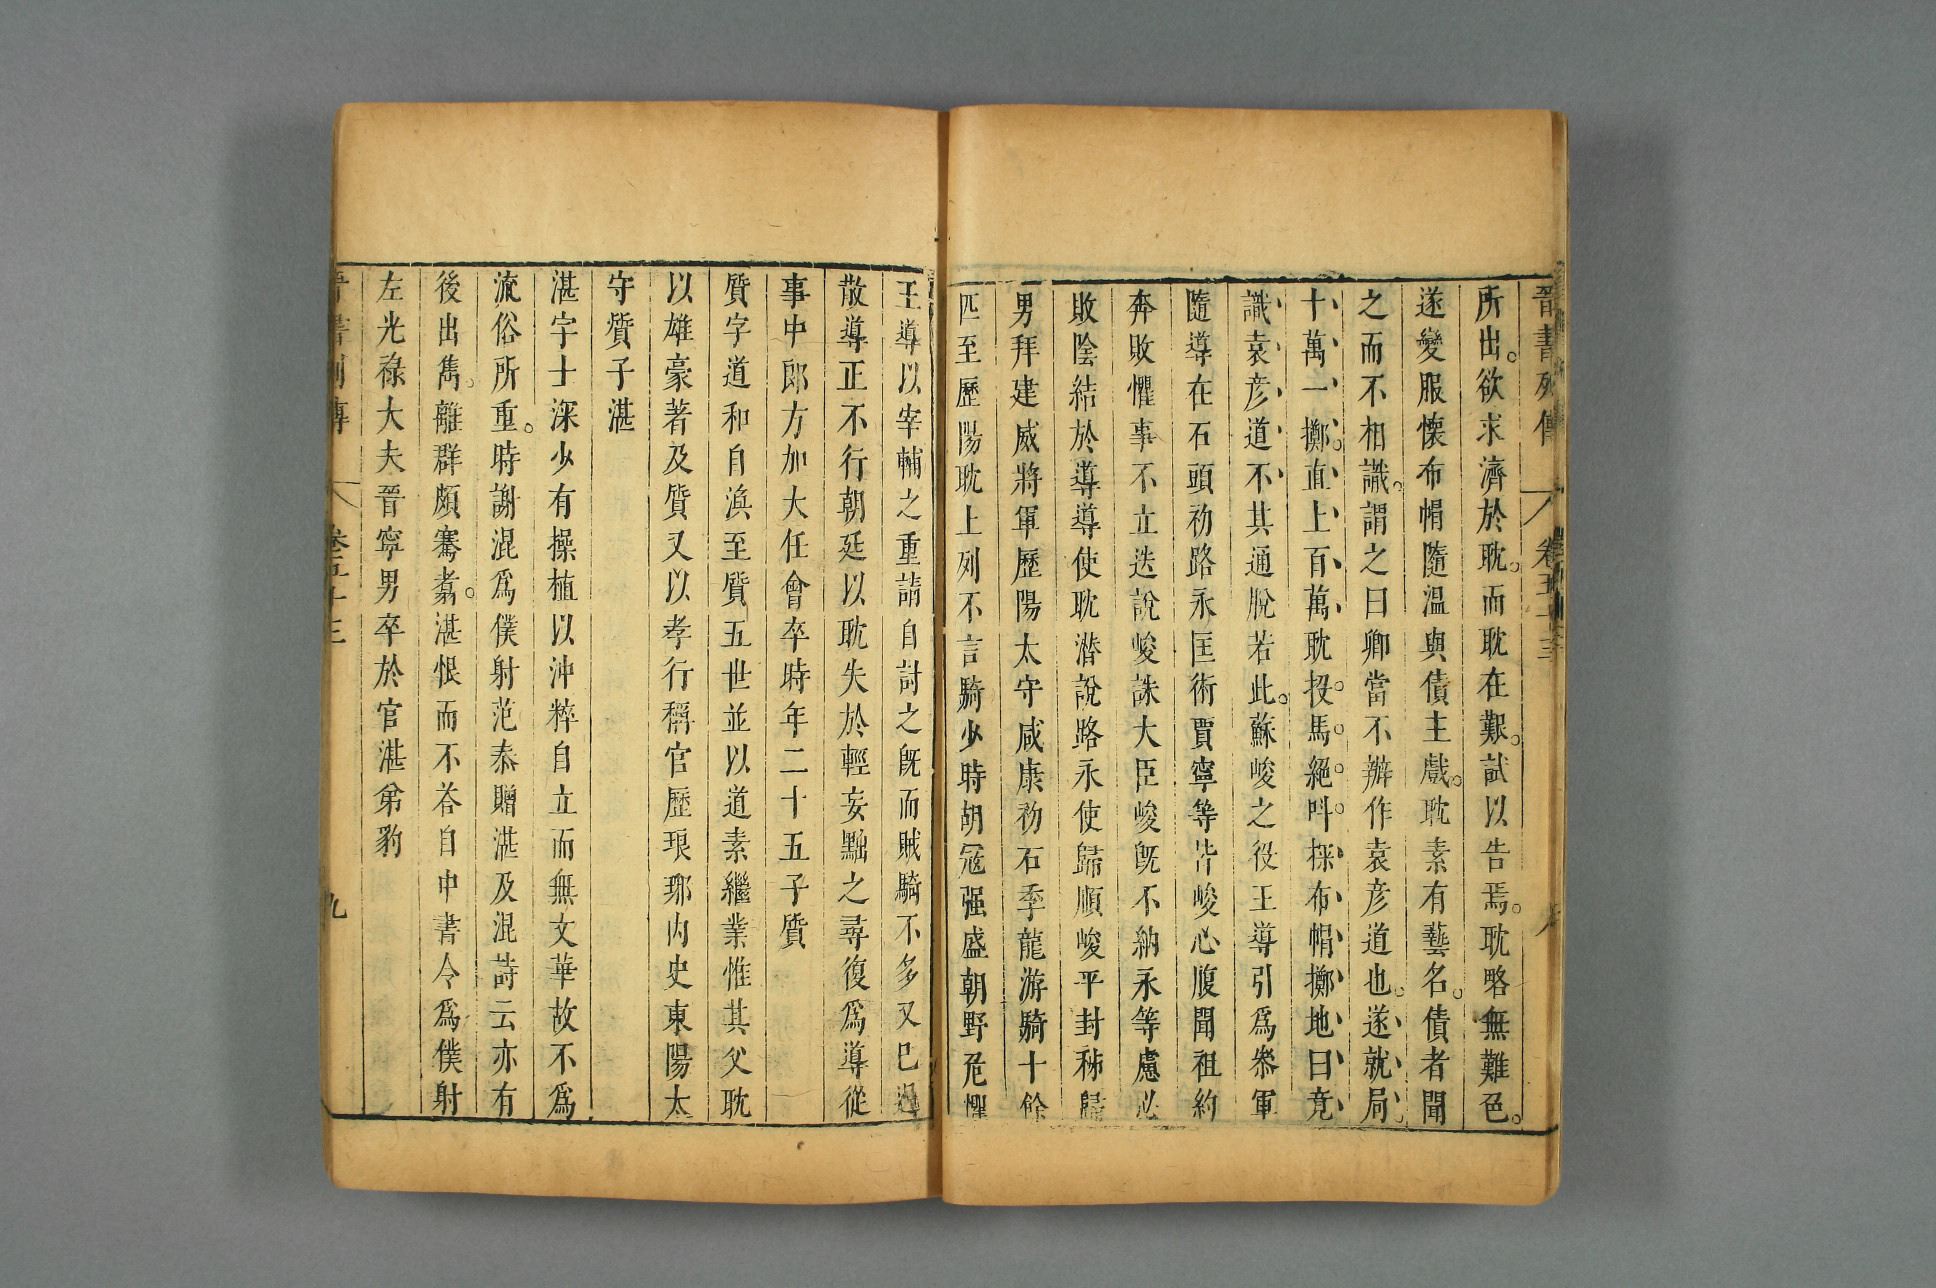 晉書列傳 卷五十三
所出。欲求濟於耽。而耽在艱。試以告焉。耽略無難色。
遂變服懷布帽隨溫與債主戲。耽素有藝名。債者聞
之而不相識。謂之曰卿當不辦作袁彥道也。遂就局。
十萬一擲。直上百萬耽投馬。絕。叫。探布帽擲地曰竟
識袁彥道不其通脫若此。蘇峻之役王導引爲參軍
隨導在石頭初路永匡術賈寧等皆峻心腹聞祖約
奔敗懼事不立迭說峻誅大臣峻旣不納永等慮必
敗陰結於導導使耽潛說路永使歸順峻平封秭歸
男拜建威將軍歷陽太守咸康初石季龍游騎十餘
匹至歷陽耽上列不言騎少時胡寇强盛朝野危懼
王導以宰輔之重請自討之旣而賊騎不多又已退
散導正不行朝廷以耽失於輕妄黜之尋復爲導從
事中郎方加大任會卒時年二十五子質
質字道和自渙至質五世並以道素繼業惟其父耽
以雄豪著及質又以孝行稱官歷琅琊內史東陽太
守質子湛
湛字士深少有操植以沖粹自立而無文華故不爲
流俗所重。時謝混爲僕射范泰贈湛及混詩云亦有
後出雋。離群頗騫翥。湛恨而不荅自中書令爲僕射
左光祿大夫晉寧男卒於官湛弟豹
晉書列傳 卷五十三 九